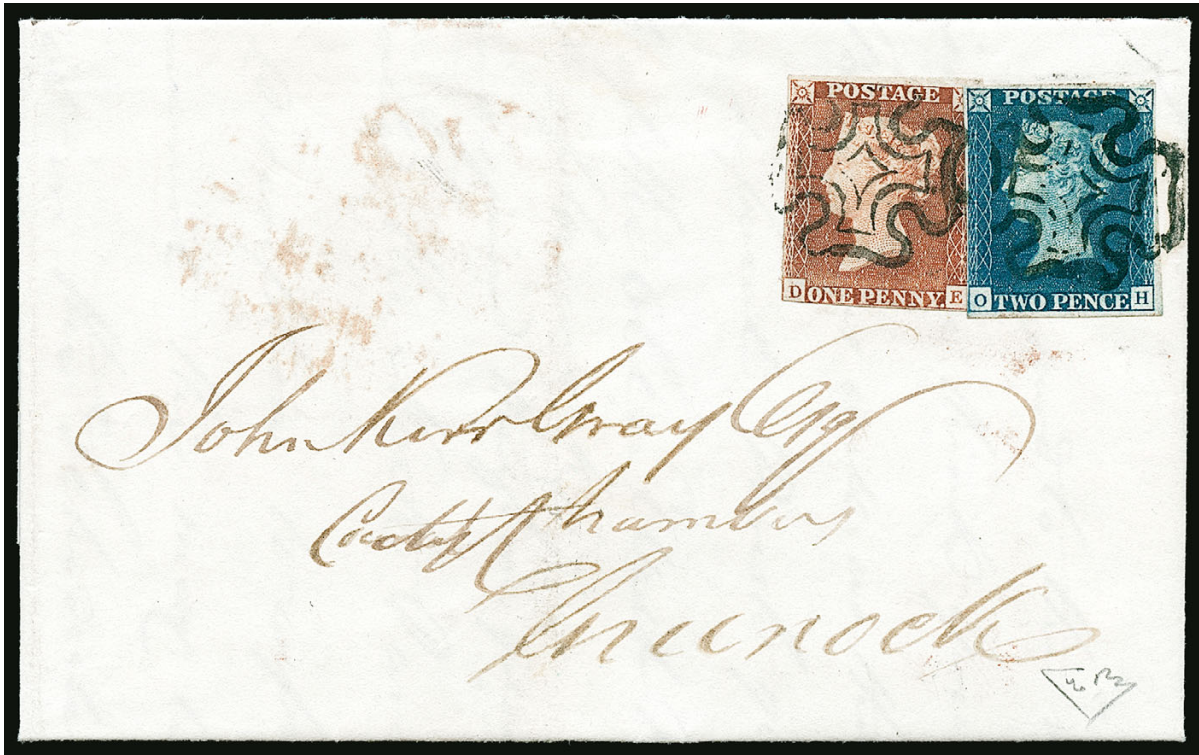 POSTAGE
D ONE PENNY. E
POSTAGE
O TWO PENCE H
John Kerr Gray Esq
Chambers
Greenock